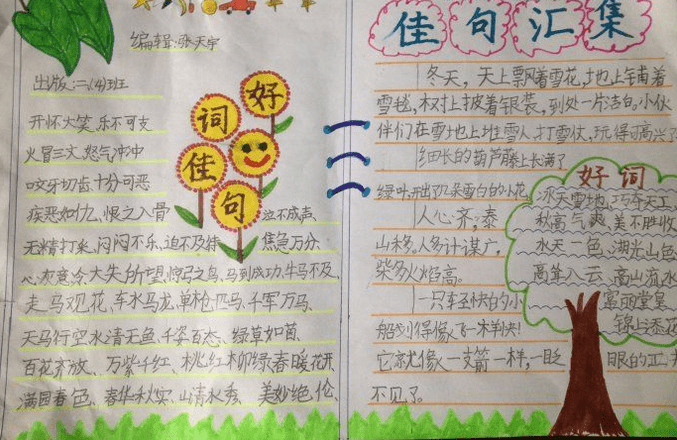 编辑:张天宇
出版:二(4)班
好
词
佳
句
开怀大笑、乐不可支
火冒三丈、怒气冲冲
咬牙切齿、十分可恶
疾恶如仇、恨之入骨
泣不成声、
无精打采、闷闷不乐、迫不及待
焦急万分、
心灰意冷、大失所望、惊弓之鸟、马到成功、牛马不及、
走马观花、车水马龙、单枪匹马、千军万马、
天马行空、水清无鱼、千姿百态、绿草如茵、
百花齐放、万紫千红、桃红柳绿、春暖花开、
满园春色、春华秋实、山清水秀、美妙绝伦、
佳句汇集
冬天,天上飘着雪花,地上铺着
雪毯,树上披着银装,到处一片洁白,小伙
伴们在雪地上堆雪人,打雪仗,玩得可高兴了
细长的葫芦藤上长满了
绿叶,开出了几朵雪白的小花
人心齐,泰
山移。人多计谋广,
柴多火焰高。
一只轻快的小
船划得像飞一样
它就像一支箭一样,一眨
眼的
不见了。
好词
冰天雪地、巧夺天工
秋高气爽、美不胜收
水天一色、湖光山色
高耸入云、高山流水
富丽堂皇
锦上添花